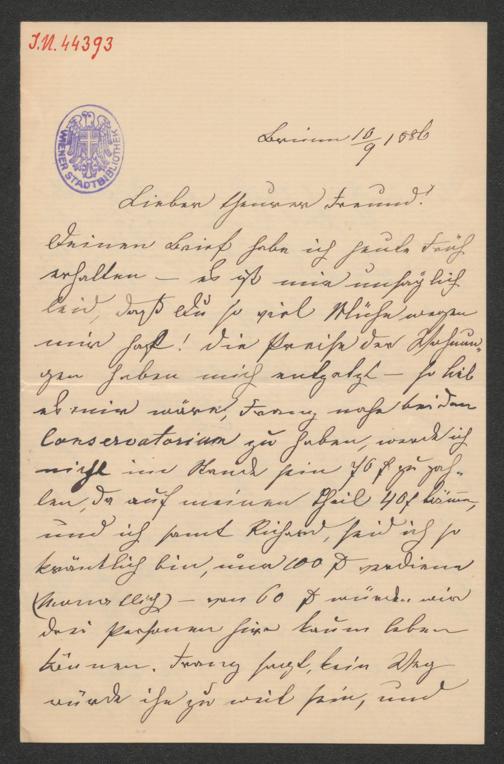 I.N. 44393
WIENER STADTBIBLIOTHEK
Brünn 10/9 1886
Lieber theurer Freund!
Deinen Brief habe ich heute Früh
erhalten – es ist mir unsäglich
leid, daß Du so viel Mühe wegen
mir hast! Die Preise der Wohnun-
gen haben mich entsetzt – so lieb
es mir wäre, Franz nahe bei dem
Conservatorium zu haben, werde ich
nicht im Stande sein 70 f zu zah-
len, da auf meinen Theil 40 f käme,
und ich samt Richard, seid ich so
kränklich bin, nur 100 f verdiene
(Monatlich) – von 60 f würden wir
drei Personen hier kaum leben
können. Franz sagt, kein Weg
würde ihm zu weit sein, und